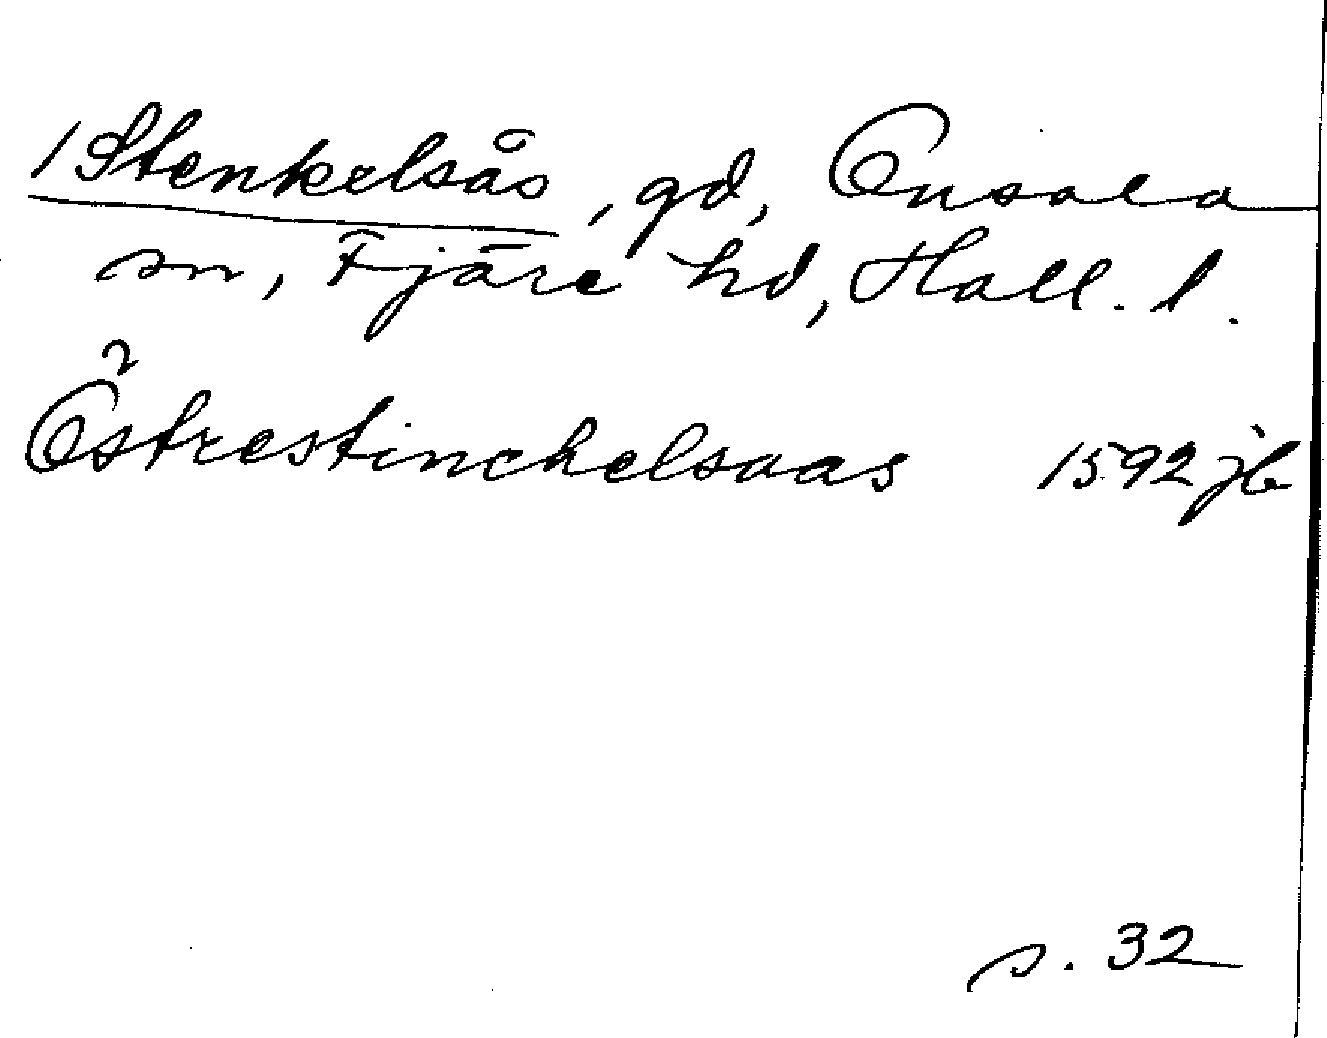 /Stenkelsås, gd, Onsala
sn, Fjäre hd, Hall. l.
Östrestinckelsaas 1592 jb
s. 32